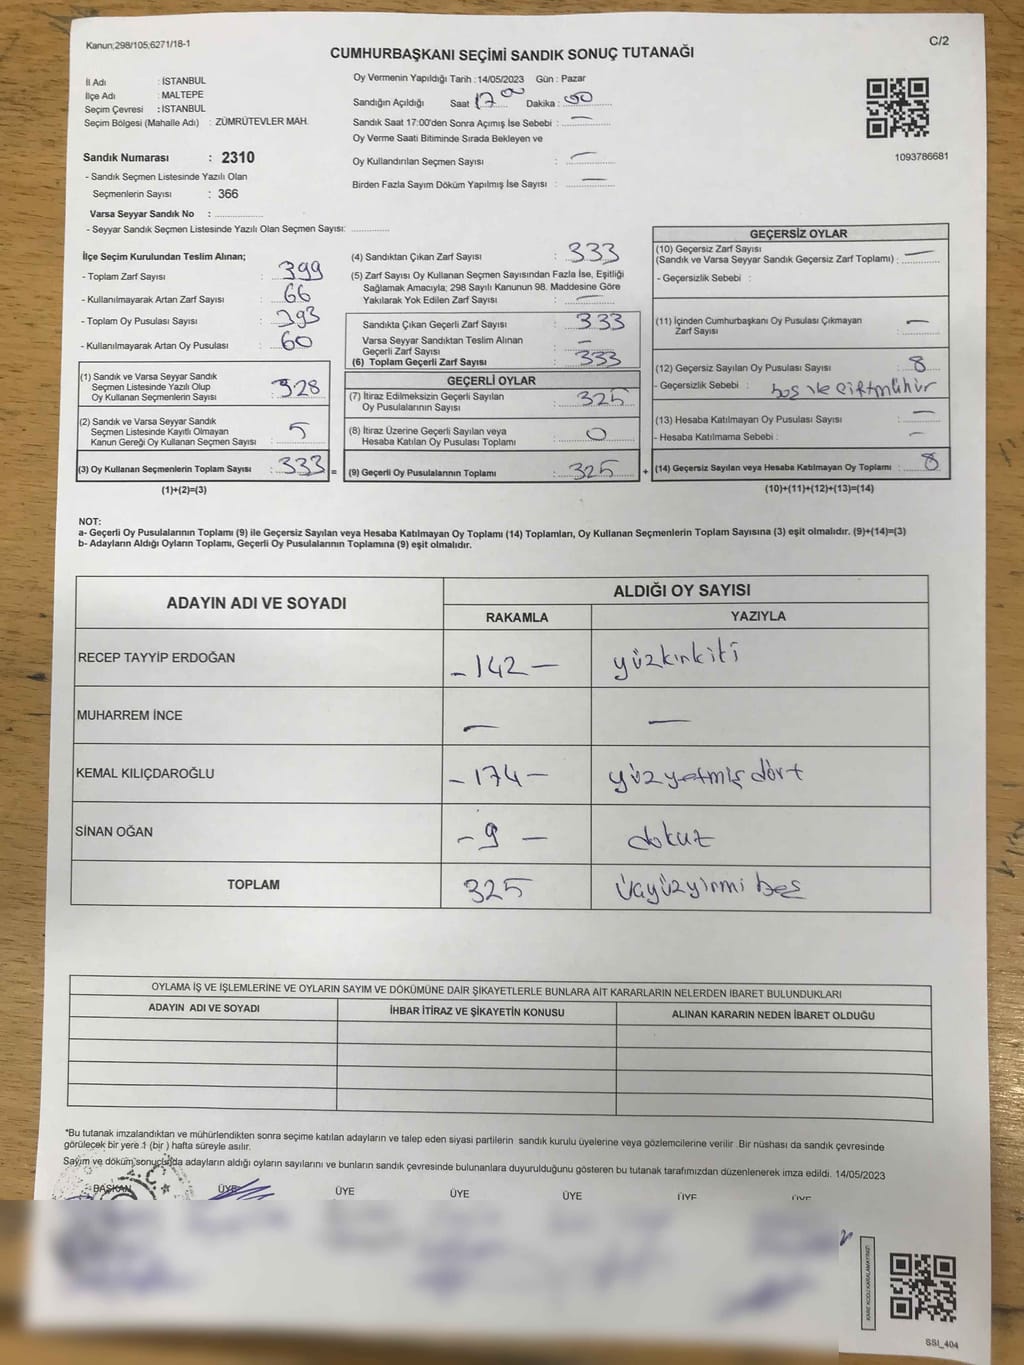 Kanun;298/105;6271/18-1
C/2
CUMHURBAŞKANI SEÇİMİ SANDIK SONUÇ TUTANAĞI
İl Adı : İSTANBUL
İlçe Adı : MALTEPE
Seçim Çevresi : İSTANBUL
Seçim Bölgesi (Mahalle Adı) : ZÜMRÜTEVLER MAH.
Sandık Numarası : 2310
- Sandık Seçmen Listesinde Yazılı Olan
Seçmenlerin Sayısı : 366
Varsa Seyyar Sandık No :
- Seyyar Sandık Seçmen Listesinde Yazılı Olan Seçmen Sayısı:
Oy Vermenin Yapıldığı Tarih : 14/05/2023 Gün : Pazar
Sandığın Açıldığı Saat 17 00 Dakika : 00
Sandık Saat 17:00'den Sonra Açımış İse Sebebi : —
Oy Verme Saati Bitiminde Sırada Bekleyen ve
Oy Kullandırılan Seçmen Sayısı : —
Birden Fazla Sayım Döküm Yapılmış İse Sayısı : —
1093786681
İlçe Seçim Kurulundan Teslim Alınan;
- Toplam Zarf Sayısı : 399
- Kullanılmayarak Artan Zarf Sayısı : 66
- Toplam Oy Pusulası Sayısı : 393
- Kullanılmayarak Artan Oy Pusulası : 60
(1) Sandık ve Varsa Seyyar Sandık
Seçmen Listesinde Yazılı Olup
Oy Kullanan Seçmenlerin Sayısı : 328
(2) Sandık ve Varsa Seyyar Sandık
Seçmen Listesinde Kayıtlı Olmayan
Kanun Gereği Oy Kullanan Seçmen Sayısı : 5
(3) Oy Kullanan Seçmenlerin Toplam Sayısı : 333 =
(1)+(2)=(3)
(4) Sandıktan Çıkan Zarf Sayısı : 333
(5) Zarf Sayısı Oy Kullanan Seçmen Sayısından Fazla İse, Eşitliği
Sağlamak Amacıyla; 298 Sayılı Kanunun 98. Maddesine Göre
Yakılarak Yok Edilen Zarf Sayısı : —
Sandıkta Çıkan Geçerli Zarf Sayısı : 333
Varsa Seyyar Sandıktan Teslim Alınan
Geçerli Zarf Sayısı : —
(6) Toplam Geçerli Zarf Sayısı : 333
GEÇERLİ OYLAR
(7) İtiraz Edilmeksizin Geçerli Sayılan
Oy Pusulalarının Sayısı : 325
(8) İtiraz Üzerine Geçerli Sayılan veya
Hesaba Katılan Oy Pusulası Toplamı : 0
(9) Geçerli Oy Pusulalarının Toplamı : 325 +
GEÇERSİZ OYLAR
(10) Geçersiz Zarf Sayısı
(Sandık ve Varsa Seyyar Sandık Geçersiz Zarf Toplamı) : —
- Geçersizlik Sebebi :
(11) İçinden Cumhurbaşkanı Oy Pusulası Çıkmayan
Zarf Sayısı : —
(12) Geçersiz Sayılan Oy Pusulası Sayısı : 8
- Geçersizlik Sebebi : boş ile çiftmühür
(13) Hesaba Katılmayan Oy Pusulası Sayısı : —
- Hesaba Katılmama Sebebi : —
(14) Geçersiz Sayılan veya Hesaba Katılmayan Oy Toplamı : 8
(10)+(11)+(12)+(13)=(14)
NOT:
a- Geçerli Oy Pusulalarının Toplamı (9) ile Geçersiz Sayılan veya Hesaba Katılmayan Oy Toplamı (14) Toplamları, Oy Kullanan Seçmenlerin Toplam Sayısına (3) eşit olmalıdır. (9)+(14)=(3)
b- Adayların Aldığı Oyların Toplamı, Geçerli Oy Pusulalarının Toplamına (9) eşit olmalıdır.
ADAYIN ADI VE SOYADI
ALDIĞI OY SAYISI
RAKAMLA YAZIYLA
RECEP TAYYİP ERDOĞAN -142- yüzkırkiki
MUHARREM İNCE — —
KEMAL KILIÇDAROĞLU -174- yüzyetmiş dört
SİNAN OĞAN -9- dokuz
TOPLAM 325 üçyüzyirmi beş
OYLAMA İŞ VE İŞLEMLERİNE VE OYLARIN SAYIM VE DÖKÜMÜNE DAİR ŞİKAYETLERLE BUNLARA AİT KARARLARIN NELERDEN İBARET BULUNDUKLARI
ADAYIN ADI VE SOYADI İHBAR İTİRAZ VE ŞİKAYETİN KONUSU ALINAN KARARIN NEDEN İBARET OLDUĞU
*Bu tutanak imzalandıktan ve mühürlendikten sonra seçime katılan adayların ve talep eden siyasi partilerin sandık kurulu üyelerine veya gözlemcilerine verilir. Bir nüshası da sandık çevresinde
görülecek bir yere 1 (bir ) hafta süreyle asılır.
Sayım ve döküm sonucunda adayların aldığı oyların sayılarını ve bunların sandık çevresinde bulunanlara duyurulduğunu gösteren bu tutanak tarafımızdan düzenlenerek imza edildi. 14/05/2023
BAŞKAN ÜYE ÜYE ÜYE ÜYE ÜYE ÜYE
KARE KODU KARALAMAYINIZ!
SSI_404